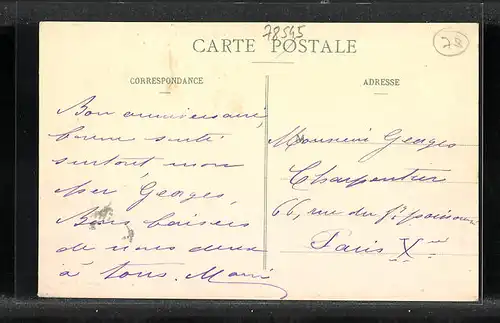 78545
CARTE POSTALE
78
CORRESPONDANCE
Bon anniversaire,
bonne santé
surtout, mon
cher Georges,
Bons baisers
de nous deux
à tous.
ADRESSE
Monsieur Georges
Charpentier
66, rue du fg poissonn
Paris Xme